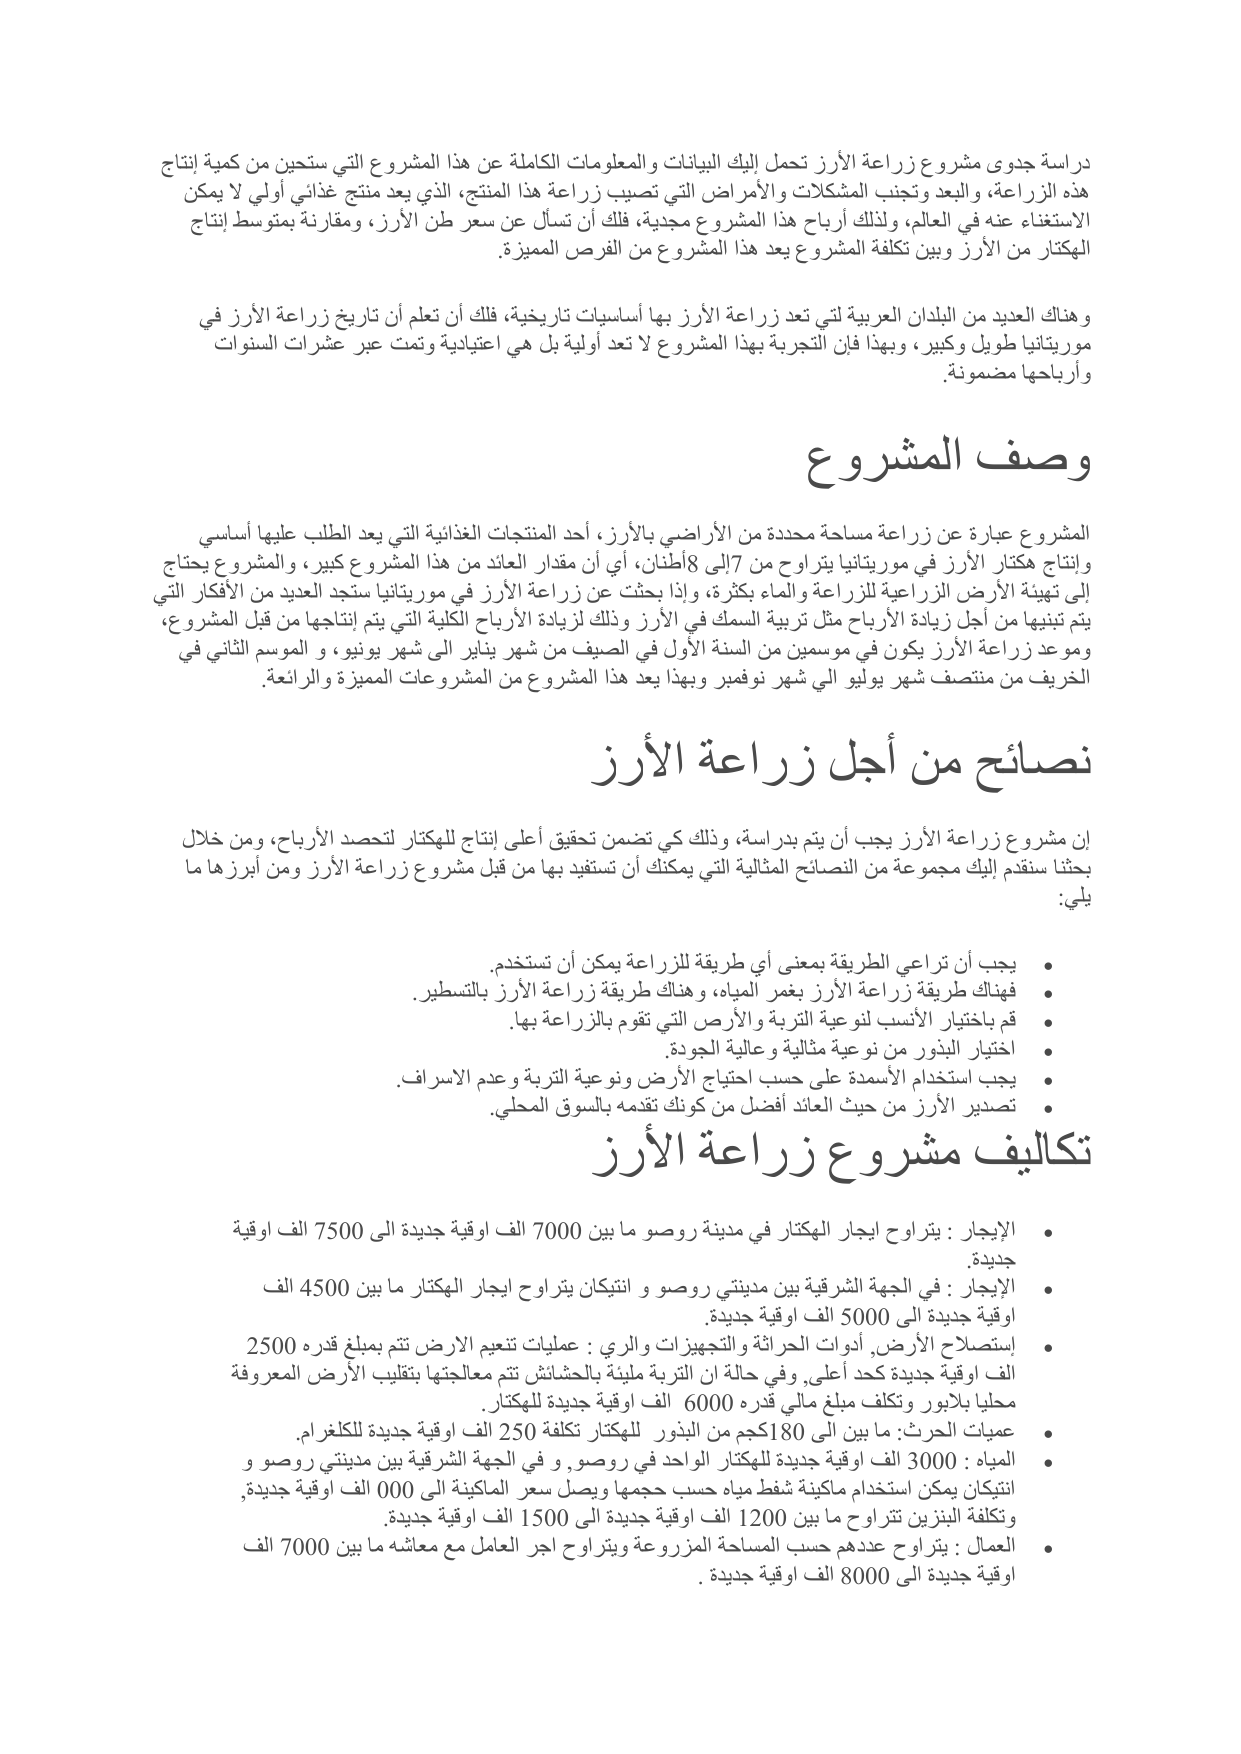 دراسة جدوى مشروع زراعة الأرز تحمل إليك البيانات والمعلومات الكاملة عن هذا المشروع التي ستحين من كمية إنتاج
هذه الزراعة، والبعد وتجنب المشكلات والأمراض التي تصيب زراعة هذا المنتج، الذي يعد منتج غذائي أولي لا يمكن
الاستغناء عنه في العالم، ولذلك أرباح هذا المشروع مجدية، فلك أن تسأل عن سعر طن الأرز، ومقارنة بمتوسط إنتاج
الهكتار من الأرز وبين تكلفة المشروع يعد هذا المشروع من الفرص المميزة.
وهناك العديد من البلدان العربية لتي تعد زراعة الأرز بها أساسيات تاريخية، فلك أن تعلم أن تاريخ زراعة الأرز في
موريتانيا طويل وكبير، وبهذا فإن التجربة بهذا المشروع لا تعد أولية بل هي اعتيادية وتمت عبر عشرات السنوات
وأرباحها مضمونة.
وصف المشروع
المشروع عبارة عن زراعة مساحة محددة من الأراضي بالأرز، أحد المنتجات الغذائية التي يعد الطلب عليها أساسي
وإنتاج هكتار الأرز في موريتانيا يتراوح من 7إلى 8أطنان، أي أن مقدار العائد من هذا المشروع كبير، والمشروع يحتاج
إلى تهيئة الأرض الزراعية للزراعة والماء بكثرة، وإذا بحثت عن زراعة الأرز في موريتانيا ستجد العديد من الأفكار التي
يتم تبنيها من أجل زيادة الأرباح مثل تربية السمك في الأرز وذلك لزيادة الأرباح الكلية التي يتم إنتاجها من قبل المشروع،
وموعد زراعة الأرز يكون في موسمين من السنة الأول في الصيف من شهر يناير الى شهر يونيو، و الموسم الثاني في
الخريف من منتصف شهر يوليو الي شهر نوفمبر وبهذا يعد هذا المشروع من المشروعات المميزة والرائعة.
نصائح من أجل زراعة الأرز
إن مشروع زراعة الأرز يجب أن يتم بدراسة، وذلك كي تضمن تحقيق أعلى إنتاج للهكتار لتحصد الأرباح، ومن خلال
بحثنا سنقدم إليك مجموعة من النصائح المثالية التي يمكنك أن تستفيد بها من قبل مشروع زراعة الأرز ومن أبرزها ما
يلي:
• يجب أن تراعي الطريقة بمعنى أي طريقة للزراعة يمكن أن تستخدم.
• فهناك طريقة زراعة الأرز بغمر المياه، وهناك طريقة زراعة الأرز بالتسطير.
• قم باختيار الأنسب لنوعية التربة والأرص التي تقوم بالزراعة بها.
• اختيار البذور من نوعية مثالية وعالية الجودة.
• يجب استخدام الأسمدة على حسب احتياج الأرض ونوعية التربة وعدم الاسراف.
• تصدير الأرز من حيث العائد أفضل من كونك تقدمه بالسوق المحلي.
تكاليف مشروع زراعة الأرز
• الإيجار : يتراوح ايجار الهكتار في مدينة روصو ما بين 7000 الف اوقية جديدة الى 7500 الف اوقية
جديدة.
• الإيجار : في الجهة الشرقية بين مدينتي روصو و انتيكان يتراوح ايجار الهكتار ما بين 4500 الف
اوقية جديدة الى 5000 الف اوقية جديدة.
• إستصلاح الأرض, أدوات الحراثة والتجهيزات والري : عمليات تنعيم الارض تتم بمبلغ قدره 2500
الف اوقية جديدة كحد أعلى, وفي حالة ان التربة مليئة بالحشائش تتم معالجتها بتقليب الأرض المعروفة
محليا بلابور وتكلف مبلغ مالي قدره 6000 الف اوقية جديدة للهكتار.
• عميات الحرث: ما بين الى 180كجم من البذور للهكتار تكلفة 250 الف اوقية جديدة للكلغرام.
• المياه : 3000 الف اوقية جديدة للهكتار الواحد في روصو, و في الجهة الشرقية بين مدينتي روصو و
انتيكان يمكن استخدام ماكينة شفط مياه حسب حجمها ويصل سعر الماكينة الى 000 الف اوقية جديدة,
وتكلفة البنزين تتراوح ما بين 1200 الف اوقية جديدة الى 1500 الف اوقية جديدة.
• العمال : يتراوح عددهم حسب المساحة المزروعة ويتراوح اجر العامل مع معاشه ما بين 7000 الف
اوقية جديدة الى 8000 الف اوقية جديدة .